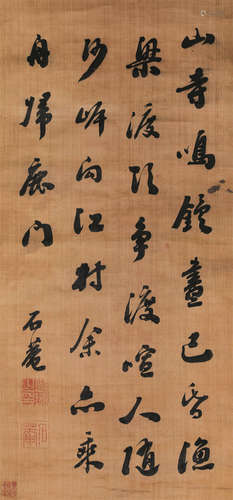 山寺鳴鐘晝已昏漁
梁渡頭爭渡喧人隨
沙岸向江村余亦乘
舟歸鹿門
石菴